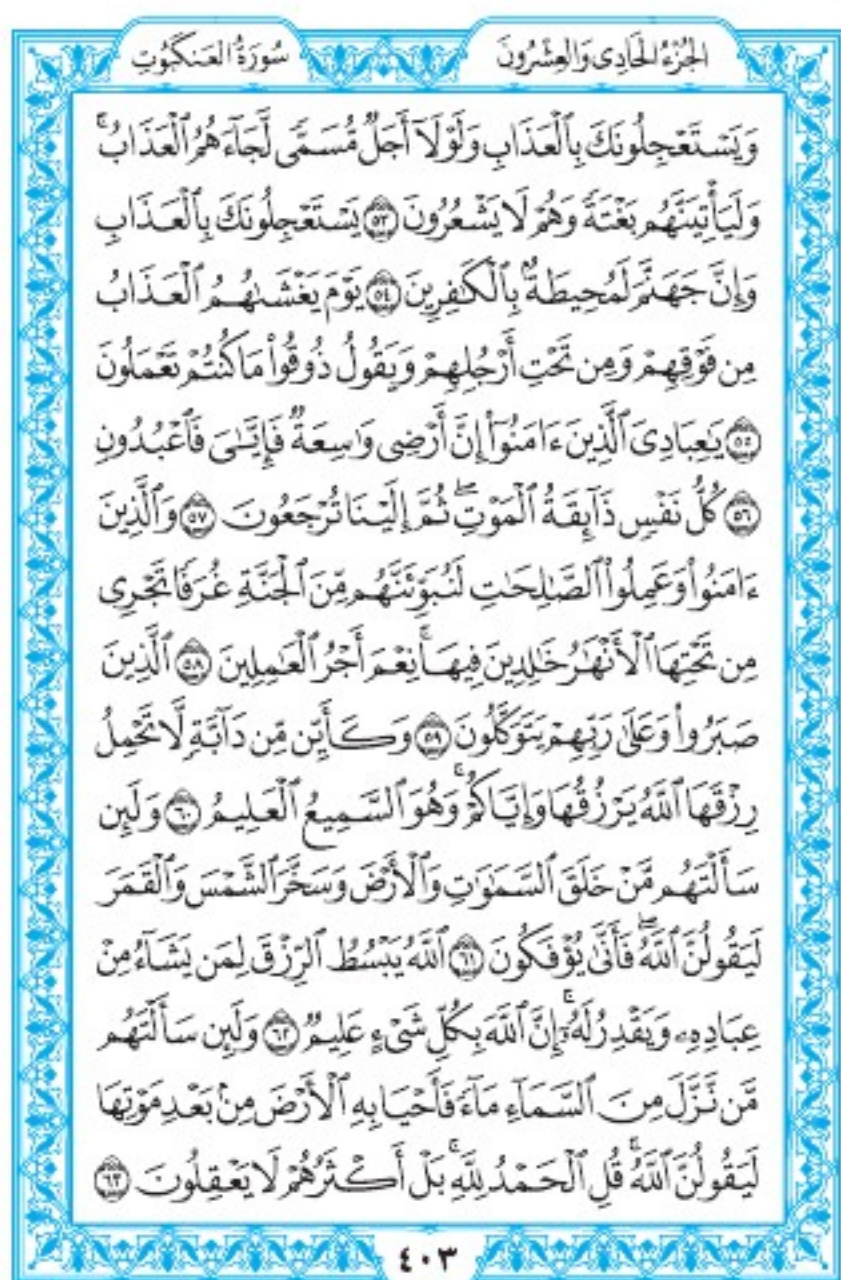 الجُزْءُ الحَادِى وَالعِشْرُونَ
سُورَةُ العَنكَبُوتِ
وَيَسْتَعْجِلُونَكَ بِٱلْعَذَابِ وَلَوْلَآ أَجَلٌ مُّسَمًّى لَّجَآءَهُمُ ٱلْعَذَابُۚ
وَلَيَأْتِيَنَّهُم بَغْتَةً وَهُمْ لَا يَشْعُرُونَ ۝٥٣ يَسْتَعْجِلُونَكَ بِٱلْعَذَابِ
وَإِنَّ جَهَنَّمَ لَمُحِيطَةٌۢ بِٱلْكَٰفِرِينَ ۝٥٤ يَوْمَ يَغْشَىٰهُمُ ٱلْعَذَابُ
مِن فَوْقِهِمْ وَمِن تَحْتِ أَرْجُلِهِمْ وَيَقُولُ ذُوقُوا۟ مَا كُنتُمْ تَعْمَلُونَ
۝٥٥ يَٰعِبَادِىَ ٱلَّذِينَ ءَامَنُوٓا۟ إِنَّ أَرْضِى وَٰسِعَةٌ فَإِيَّٰىَ فَٱعْبُدُونِ
۝٥٦ كُلُّ نَفْسٍ ذَآئِقَةُ ٱلْمَوْتِۖ ثُمَّ إِلَيْنَا تُرْجَعُونَ ۝٥٧ وَٱلَّذِينَ
ءَامَنُوا۟ وَعَمِلُوا۟ ٱلصَّٰلِحَٰتِ لَنُبَوِّئَنَّهُم مِّنَ ٱلْجَنَّةِ غُرَفًا تَجْرِى
مِن تَحْتِهَا ٱلْأَنْهَٰرُ خَٰلِدِينَ فِيهَاۚ نِعْمَ أَجْرُ ٱلْعَٰمِلِينَ ۝٥٨ ٱلَّذِينَ
صَبَرُوا۟ وَعَلَىٰ رَبِّهِمْ يَتَوَكَّلُونَ ۝٥٩ وَكَأَيِّن مِّن دَآبَّةٍ لَّا تَحْمِلُ
رِزْقَهَا ٱللَّهُ يَرْزُقُهَا وَإِيَّاكُمْۚ وَهُوَ ٱلسَّمِيعُ ٱلْعَلِيمُ ۝٦٠ وَلَئِن
سَأَلْتَهُم مَّنْ خَلَقَ ٱلسَّمَٰوَٰتِ وَٱلْأَرْضَ وَسَخَّرَ ٱلشَّمْسَ وَٱلْقَمَرَ
لَيَقُولُنَّ ٱللَّهُۖ فَأَنَّىٰ يُؤْفَكُونَ ۝٦١ ٱللَّهُ يَبْسُطُ ٱلرِّزْقَ لِمَن يَشَآءُ مِنْ
عِبَادِهِۦ وَيَقْدِرُ لَهُۥٓۚ إِنَّ ٱللَّهَ بِكُلِّ شَىْءٍ عَلِيمٌ ۝٦٢ وَلَئِن سَأَلْتَهُم
مَّن نَّزَّلَ مِنَ ٱلسَّمَآءِ مَآءً فَأَحْيَا بِهِ ٱلْأَرْضَ مِنۢ بَعْدِ مَوْتِهَا
لَيَقُولُنَّ ٱللَّهُۚ قُلِ ٱلْحَمْدُ لِلَّهِۚ بَلْ أَكْثَرُهُمْ لَا يَعْقِلُونَ ۝٦٣
٤٠٣